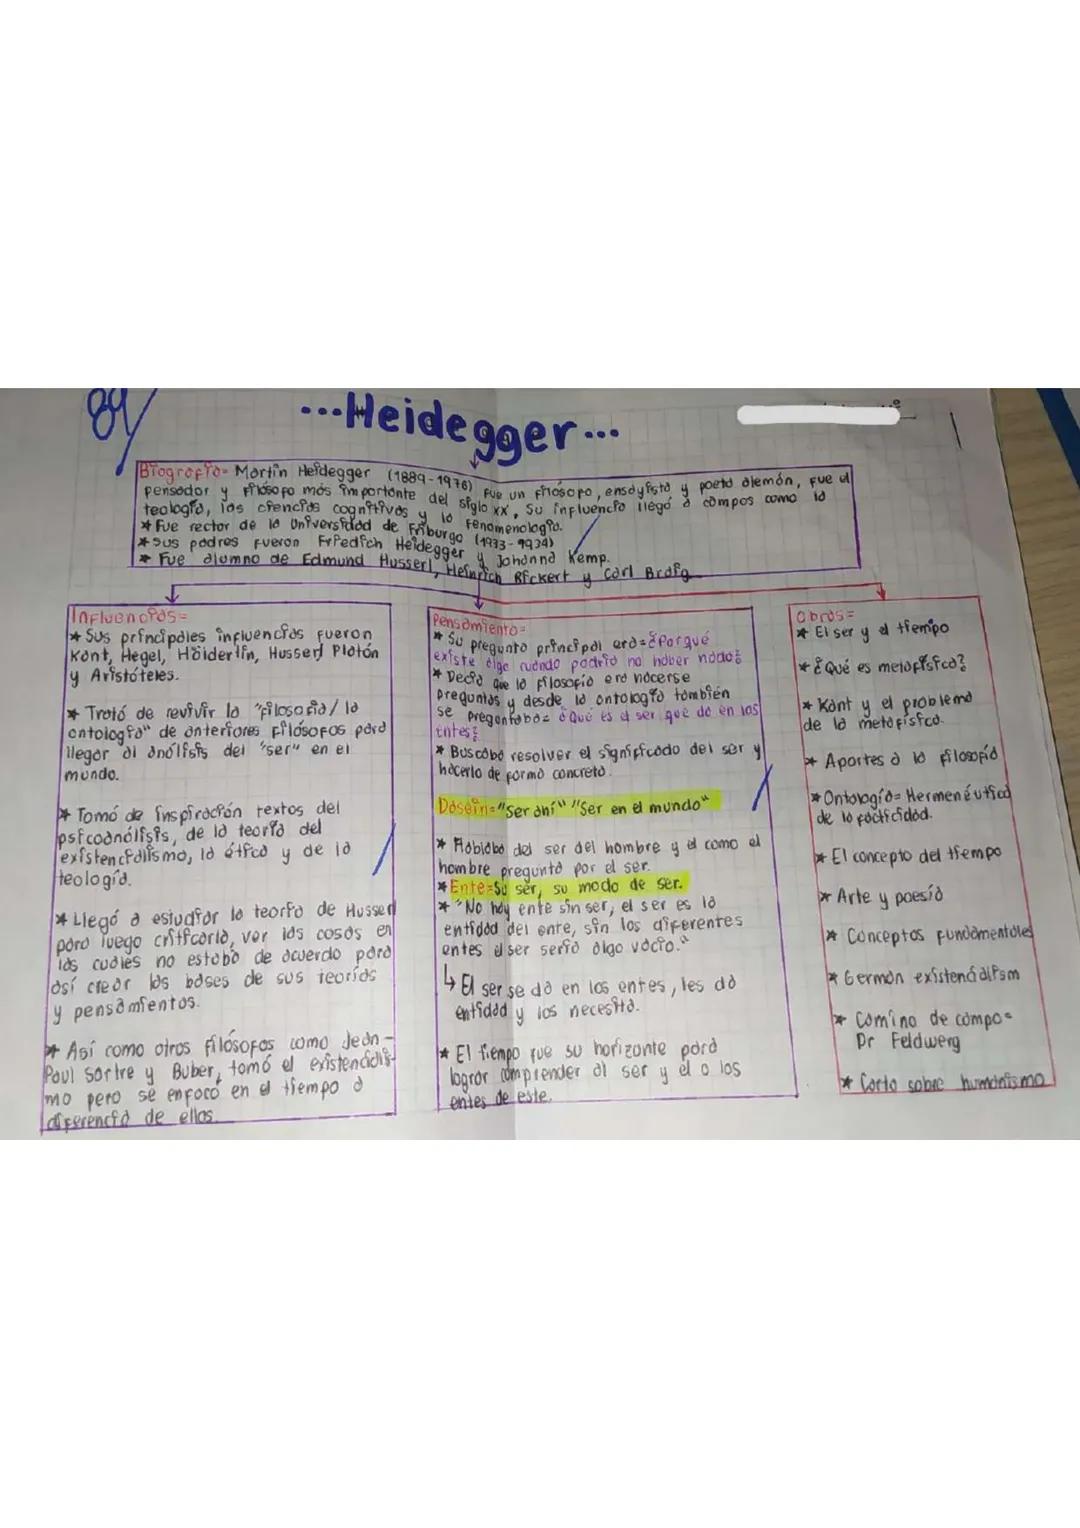 84/
...Heidegger...
Biografía= Martin Heidegger (1889-1976) Fue un filósofo, ensayista y poeta alemán, fue el
pensador y filósofo más importante del siglo XX. Su influencia llegó a campos como la
teología, las ciencias cognitivas y la fenomenología.
* Fue rector de la Universidad de Friburgo (1933-1934)
* Sus padres fueron Friedich Heidegger y Johanna Kemp.
* Fue alumno de Edmund Husserl, Heinrich Rickert y Carl Braig
Influencias=
* Sus principales influencias fueron
Kant, Hegel, Hölderlin, Husserl Platón
y Aristóteles.
* Trató de revivir la "filosofía/la
ontología" de anteriores filósofos para
llegar al análisis del "ser" en el
mundo.
* Tomó de inspiración textos del
psicoanálisis, de la teoría del
existencialismo, la ética y de la
teología.
* Llegó a estudiar la teoría de Husserl
para luego criticarla, ver las cosas en
las cuales no estaba de acuerdo para
así crear las bases de sus teorías
y pensamientos.
* Así como otros filósofos como Jean-
Paul Sartre y Buber, tomó el existencialis-
mo pero se enfocó en el tiempo a
diferencia de ellos.
Pensamiento=
* Su pregunta principal era= ¿Porqué
existe algo cuando podría no haber nada?
* Decía que la filosofía era hacerse
preguntas y desde la ontología también
se preguntaba= ¿Qué es el ser que da en los
entes?
* Buscaba resolver el significado del ser y
hacerlo de forma concreta.
Dasein= "Ser ahí" "Ser en el mundo"
* Hablaba del ser del hombre y el como el
hombre pregunta por el ser.
* Ente= Su ser, su modo de ser.
* "No hay ente sin ser, el ser es la
entidad del ente, sin los diferentes
entes el ser sería algo vacío."
↳ El ser se da en los entes, les da
entidad y los necesita.
* El tiempo fue su horizonte para
lograr comprender al ser y el o los
entes de este.
Obras=
* El ser y el tiempo
* ¿Qué es metafísica?
* Kant y el problema
de la metafísica.
* Aportes a la filosofía
* Ontología= Hermenéutica
de la facticidad.
* El concepto del tiempo
* Arte y poesía
* Conceptos fundamentales
* German existencialism
* Camino de campo=
Dr Feldwerg
* Carta sobre humanismo